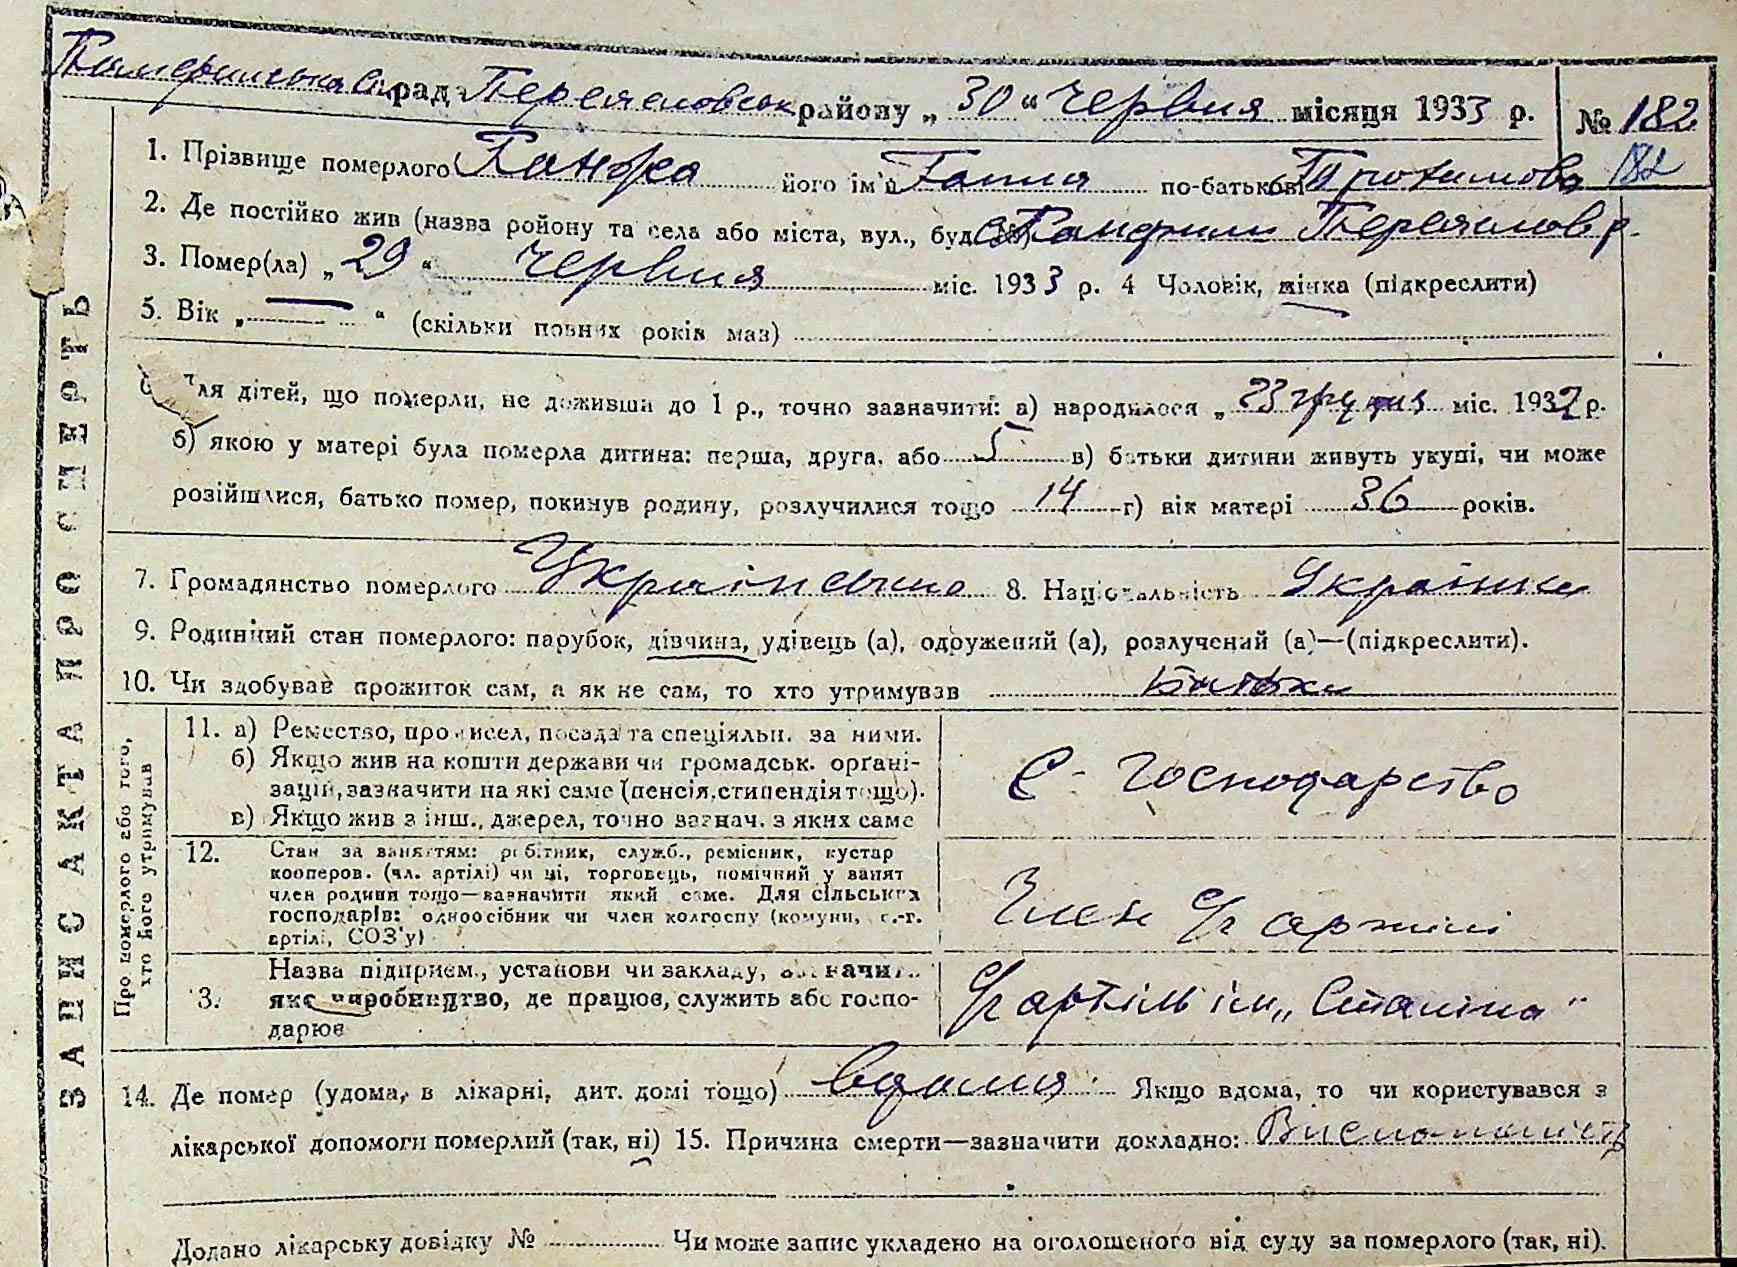 рада Переяславськ району „30“ червня місяця 1933 р. № 182
182
1. Прізвище померлого його ім'я Ганна по-батькові Трохимовна
2. Де постійно жив (назва ройону та села або міста, вул., буд. №) с. Помокли Переяславск р.
3. Помер(ла) „29“ червня міс. 1933 р. 4 Чоловік, жінка (підкреслити)
5. Вік „—“ (скільки повних років має)
Для дітей, що померли, не доживши до 1 р., точно зазначити: а) народилося „23 грудня міс. 1932 р.
б) якою у матері була померла дитина: перша, друга, або 5 в) батьки дитини живуть укупі, чи може
розійшлися, батько помер, покинув родину, розлучилися тощо 14 г) вік матері 36 років.
7. Громадянство померлого 8. Національність Українка
9. Родинний стан померлого: парубок, дівчина, удівець (а), одружений (а), розлучений (а)—(підкреслити).
10. Чи здобував прожиток сам, а як не сам, то хто утримував батьки
ЗАПИС АКТА ПРО СМЕРТЬ
Про померлого або того, хто його утримував
11. а) Ремество, промисел, посада та спеціяльн. за ними.
б) Якщо жив на кошти держави чи громадськ. органі-
зацій, зазначити на які саме (пенсія, стипендія тощо).
в) Якщо жив з інш., джерел, точно зазнач. з яких саме
С. господарство
12. Стан за заняттям: робітник, служб., ремісник, кустар
кооперов. (чл. артілі) чи ні, торговець, помічний у занят
член родини тощо—зазначити який саме. Для сільських
господарів: одноосібник чи член колгоспу (комуни, с.-г.
артілі, СОЗ'у)
Член с/г артілі
3. Назва підприєм., установи чи закладу, зазначити
яке виробництво, де працює, служить або госпо-
дарює
С/г артіль ім „Сталіна“
14. Де помер (удома, в лікарні, дит. домі тощо) вдома. Якщо вдома, то чи користувався з
лікарської допомоги померлий (так, ні) 15. Причина смерти—зазначити докладно:
Додано лікарську довідку № Чи може запис укладено на оголошеного від суду за померлого (так, ні).